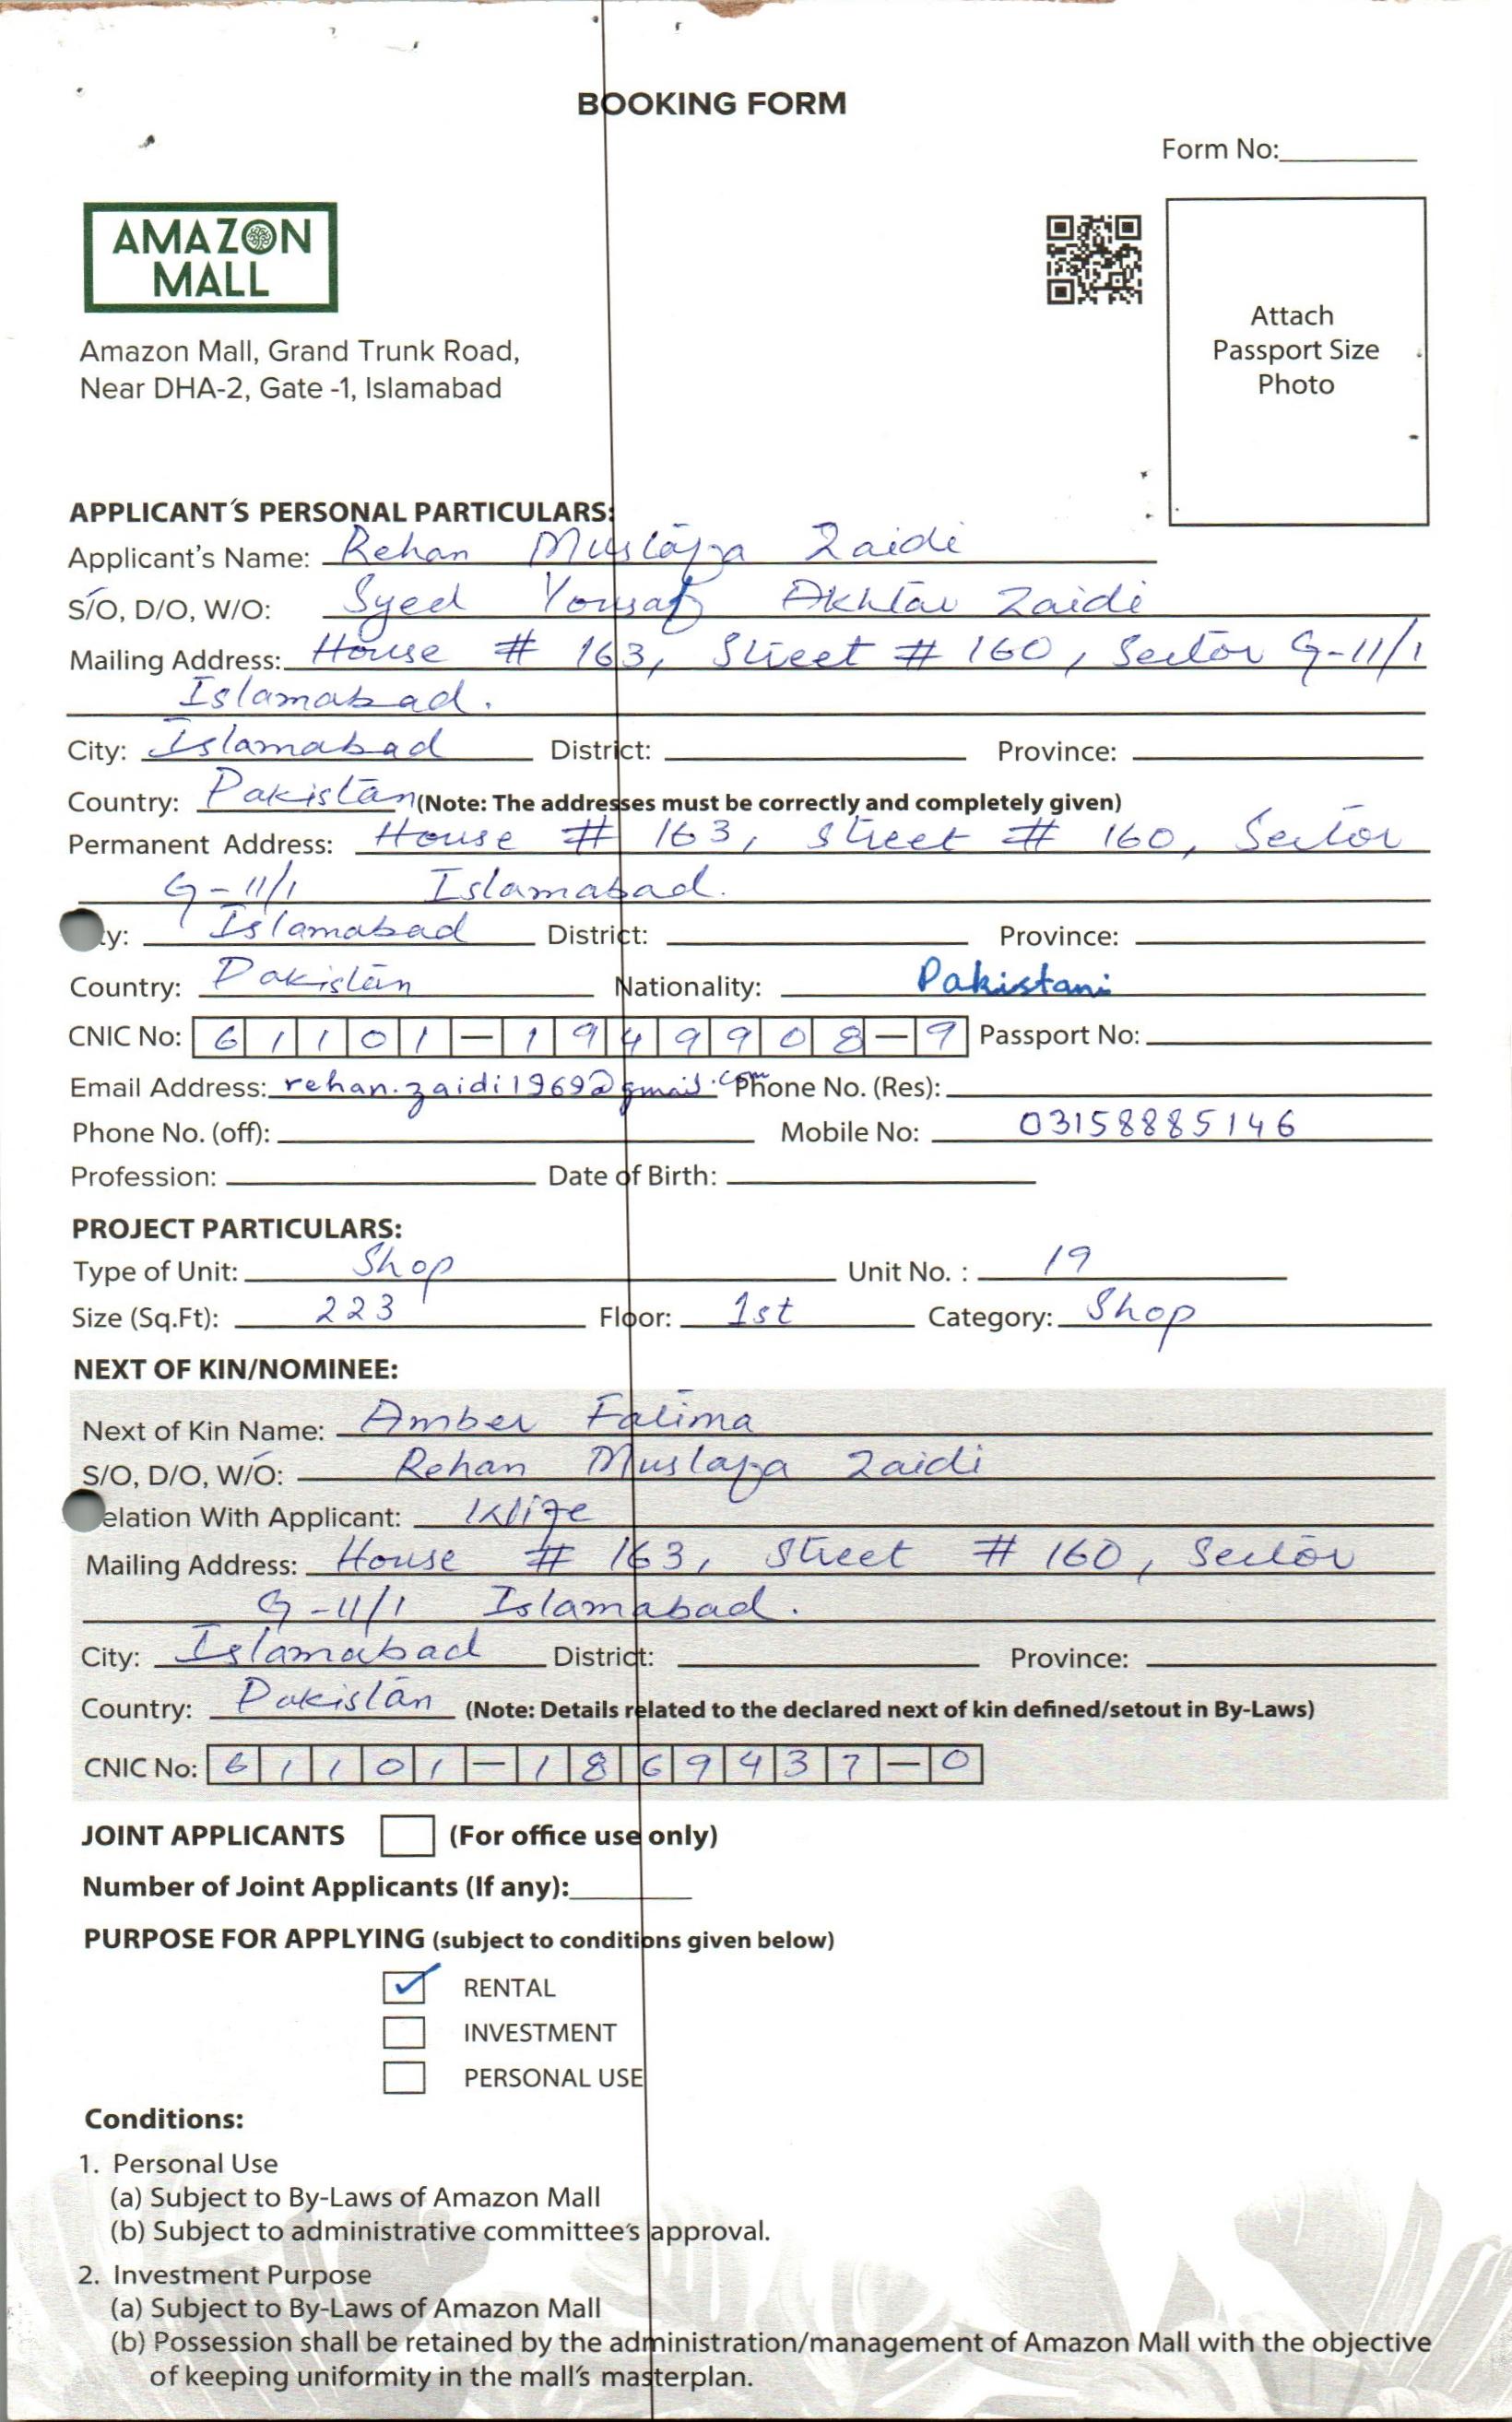 BOOKING FORM
Form No:
AMAZON
MALL
Amazon Mall, Grand Trunk Road,
Near DHA-2, Gate -1, Islamabad
Attach
Passport Size
Photo
APPLICANT'S PERSONAL PARTICULARS:
Applicant's Name: Rehan Mustafa Zaidi
S/O, D/O, W/O: Syed Yousaf Akhtar Zaidi
Mailing Address: House # 163, Street # 160, Sector G-11/1
Islamabad.
City: Islamabad District: Province:
Country: Pakistan (Note: The addresses must be correctly and completely given)
Permanent Address: House # 163, Street # 160, Sector
G-11/1 Islamabad.
y: Islamabad District: Province:
Country: Pakistan Nationality: Pakistani
CNIC No: 61101-1949908-9 Passport No:
Email Address: rehan.zaidi1969@gmail.com Phone No. (Res):
Phone No. (off): Mobile No: 03158885146
Profession: Date of Birth:
PROJECT PARTICULARS:
Type of Unit: Shop Unit No. : 19
Size (Sq.Ft): 223 Floor: 1st Category: Shop
NEXT OF KIN/NOMINEE:
Next of Kin Name: Amber Fatima
S/O, D/O, W/O: Rehan Mustafa Zaidi
elation With Applicant: Wife
Mailing Address: House # 163, Street # 160, Sector
G-11/1 Islamabad.
City: Islamabad District: Province:
Country: Pakistan (Note: Details related to the declared next of kin defined/setout in By-Laws)
CNIC No: 61101-1869437-0
JOINT APPLICANTS (For office use only)
Number of Joint Applicants (If any):
PURPOSE FOR APPLYING (subject to conditions given below)
RENTAL
INVESTMENT
PERSONAL USE
Conditions:
1. Personal Use
(a) Subject to By-Laws of Amazon Mall
(b) Subject to administrative committee's approval.
2. Investment Purpose
(a) Subject to By-Laws of Amazon Mall
(b) Possession shall be retained by the administration/management of Amazon Mall with the objective
of keeping uniformity in the mall's masterplan.